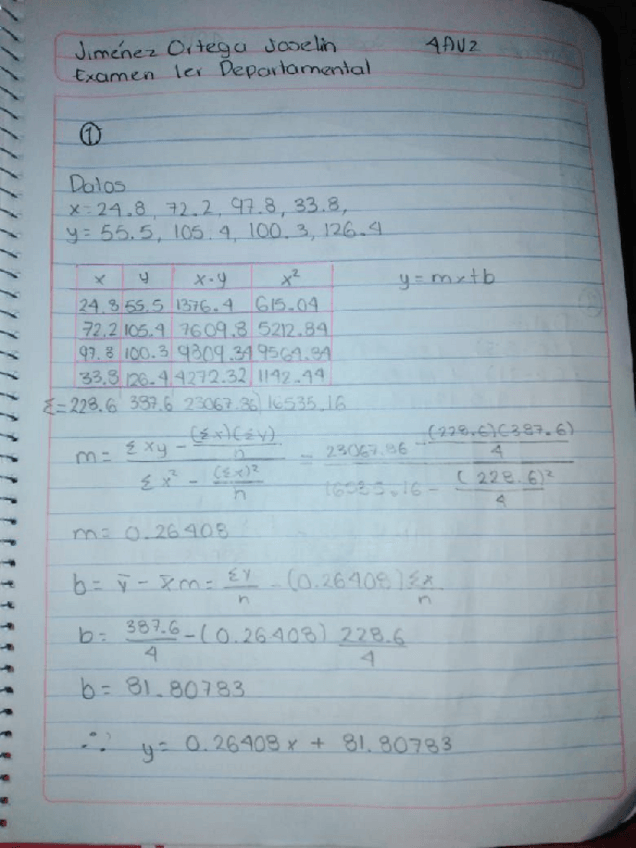 Jiménez Ortega Joselin 4AV2
Examen 1er Departamental
①
Datos
x=24.8, 72.2, 97.8, 33.8,
y= 55.5, 105.4, 100.3, 126.4
x y x·y x²
y=mx+b
24.8 55.5 1376.4 615.04
72.2 105.4 7609.8 5212.84
97.8 100.3 9809.34 9564.84
33.8 126.4 4272.32 1142.44
Σ=228.6 387.6 23067.86 16535.16
m= Σxy - (Σx)(Σy)/n / Σx² - (Σx)²/n = 23067.86 - (228.6)(387.6)/4 / 16535.16 - (228.6)²/4
m= 0.26408
b= ȳ - x̄m = Σy/n - (0.26408) Σx/n
b= 387.6/4 - (0.26408) 228.6/4
b= 81.80783
∴ y= 0.26408x + 81.80783